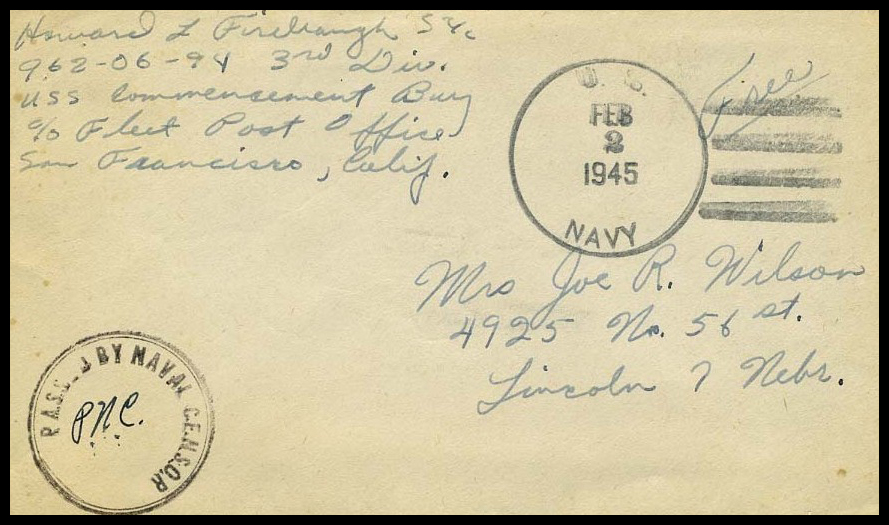 Howard L Firebaugh S1/c
962-06-94 3rd Div.
USS Commencement Bay
c/o Fleet Post Office
San Francisco, Calif.
Free
U. S.
FEB
2
1945
NAVY
Mrs Joe R. Wilson
4925 No. 56 st.
Lincoln 7 Nebr.
PASSED BY NAVAL CENSOR
PNC.